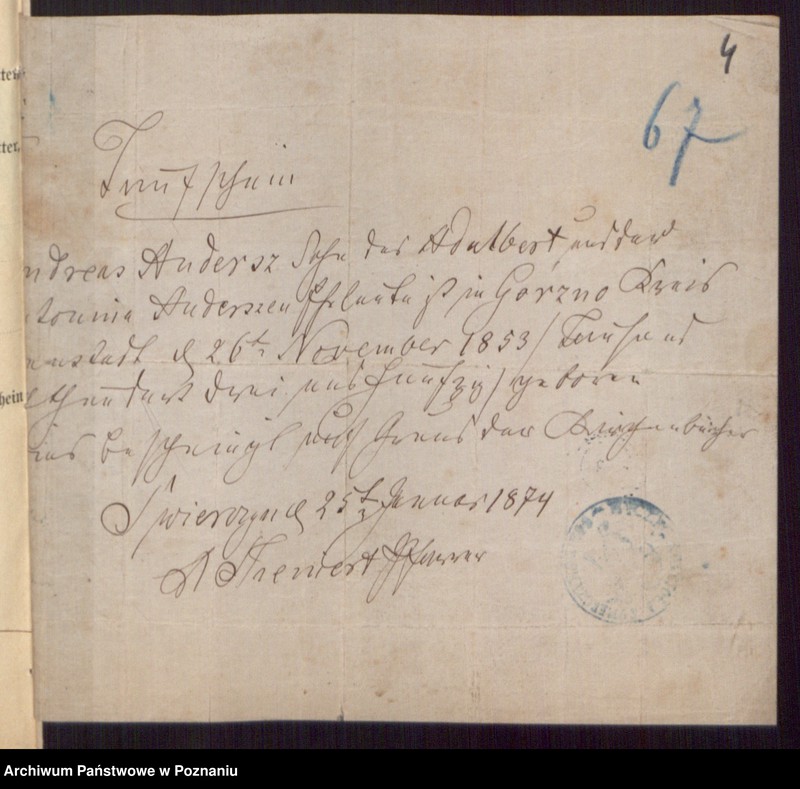 4
67
tter,
hein
Taufschein
ndreas Andersz Sohn des Adalbert und der
tonina Anderszen Eheleute ist in Górzno Kreis
nstadt d 26t November 1853 / Tausend
thundert drei und fünfzig / geboren
bescheinigt auf Grund der Kirchenbücher
Swierczyn d 25t Januar 1874
Pfarrer
Archiwum Państwowe w Poznaniu